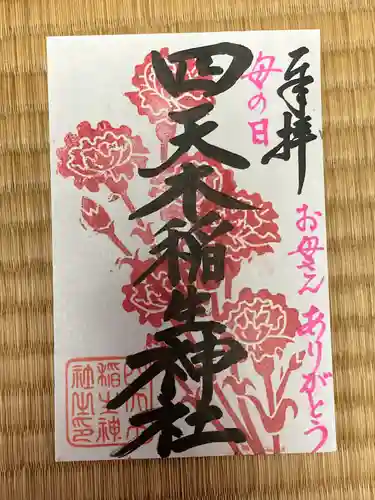 奉拝
母の日
お母さん ありがとう
四天木稲生神社
稲生神
社之印